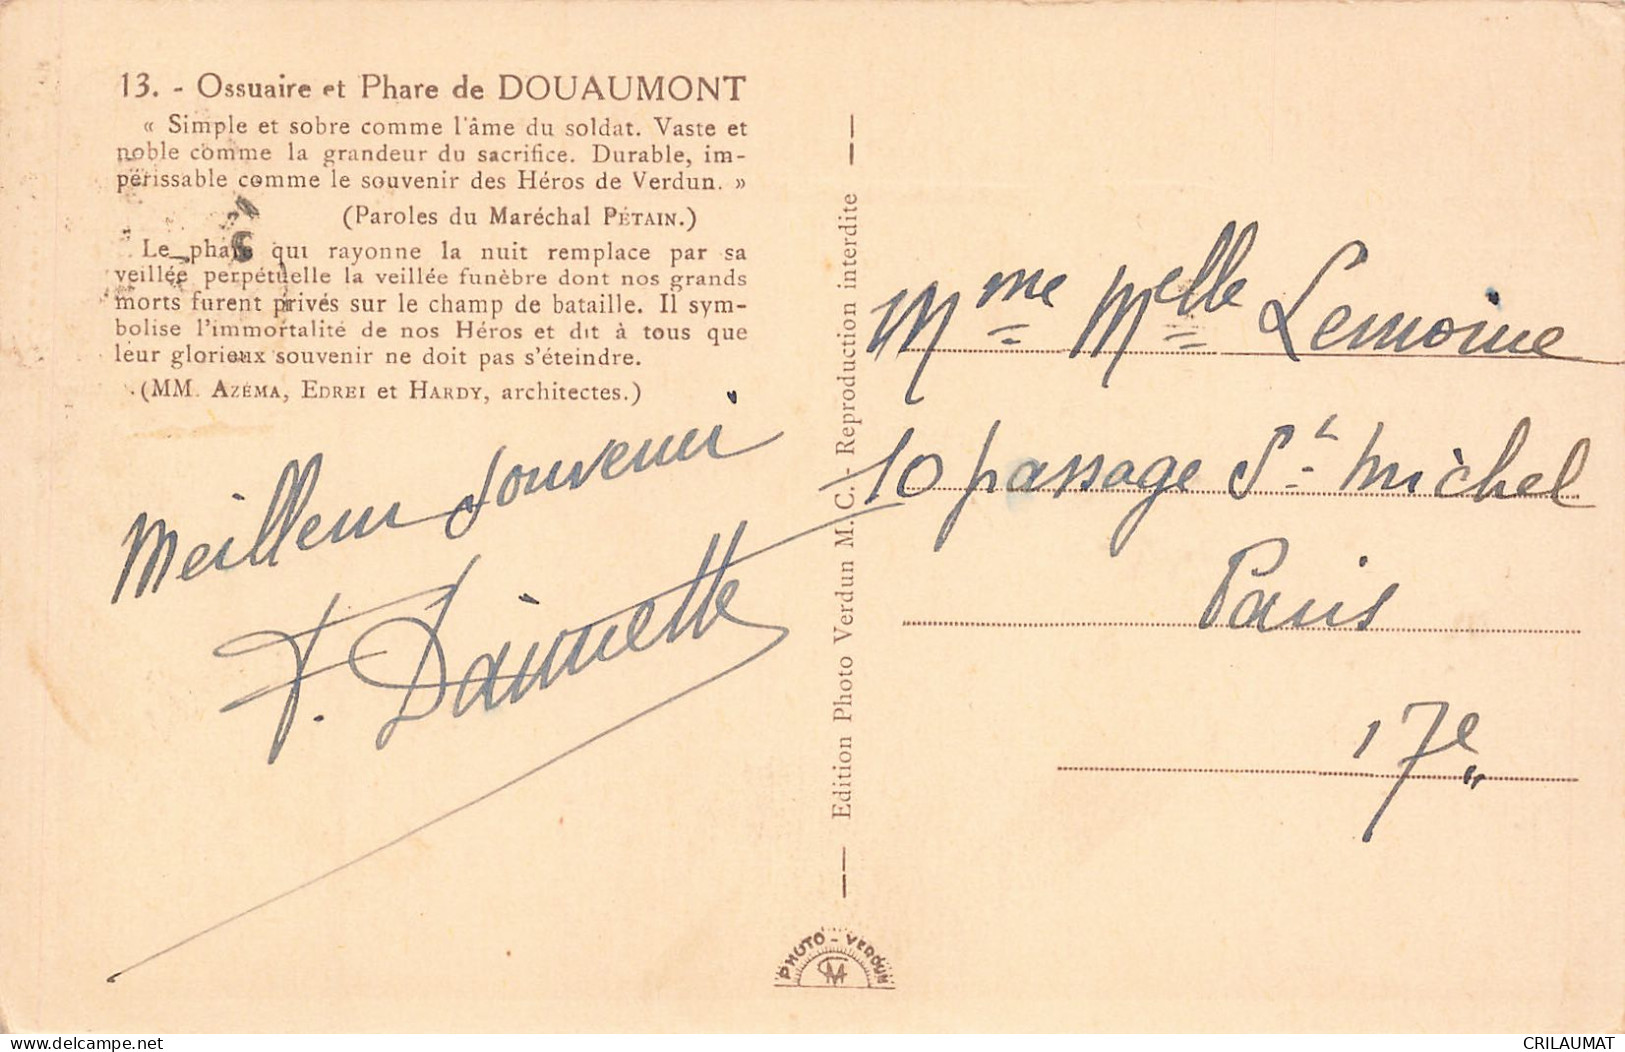 13. - Ossuaire et Phare de DOUAUMONT
« Simple et sobre comme l'âme du soldat. Vaste et
noble comme la grandeur du sacrifice. Durable, im-
périssable comme le souvenir des Héros de Verdun. »
(Paroles du Maréchal PÉTAIN.)
Le phare qui rayonne la nuit remplace par sa
veillée perpétuelle la veillée funèbre dont nos grands
morts furent privés sur le champ de bataille. Il sym-
bolise l'immortalité de nos Héros et dit à tous que
leur glorieux souvenir ne doit pas s'éteindre.
(MM. AZÉMA, EDREI et HARDY, architectes.)
Meilleur souvenir
Edition Photo Verdun M. C. - Reproduction interdite
Mme Melle Lemoine
10 passage St Michel
Paris
17e
PHOTO - VERDUN
CM
delcampe.net
CRILAUMAT